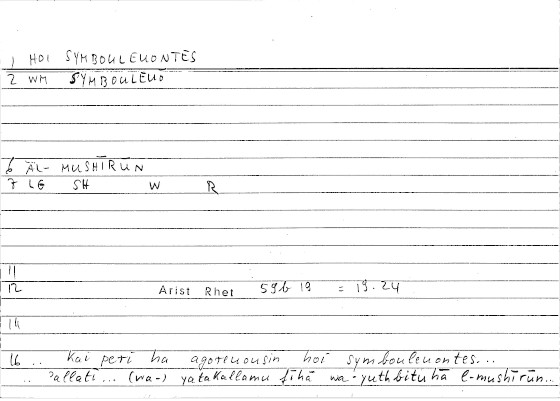 1 HOI SYMBOULEUONTĒS
2 WM SYMBOULEUŌ
6 ĀL- MUSHĪRŪN
7 LG SH W R
11
12 Arist Rhet 59b 19 = 19.24
14
16 .. kai peri ha agoreuousin hoi symbouleuontes...
.. ʾallatī... (wa-) yatakallamu fīhā wa-yuthbituhā l-mushīrūn...